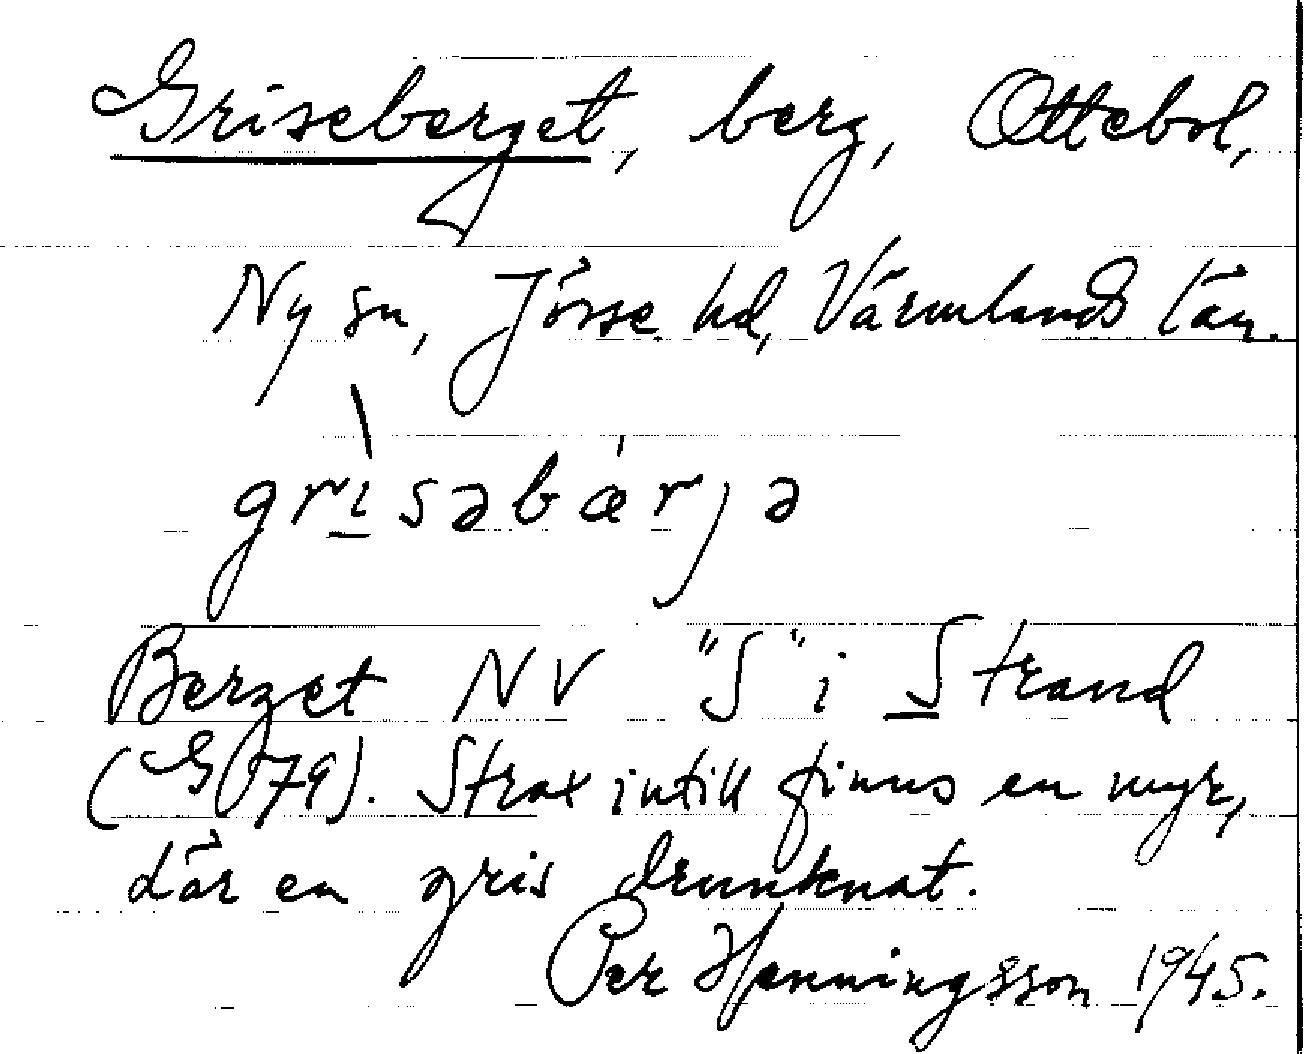 Griseberget, berg, Ottebol,
Ny sn, Jösse hd, Värmlands län.
grìsəbærjə
Berget NV "S" i Strand
(G 79). Strax intill finns en myr,
där en gris drunknat.
Per Henningsson 1945.